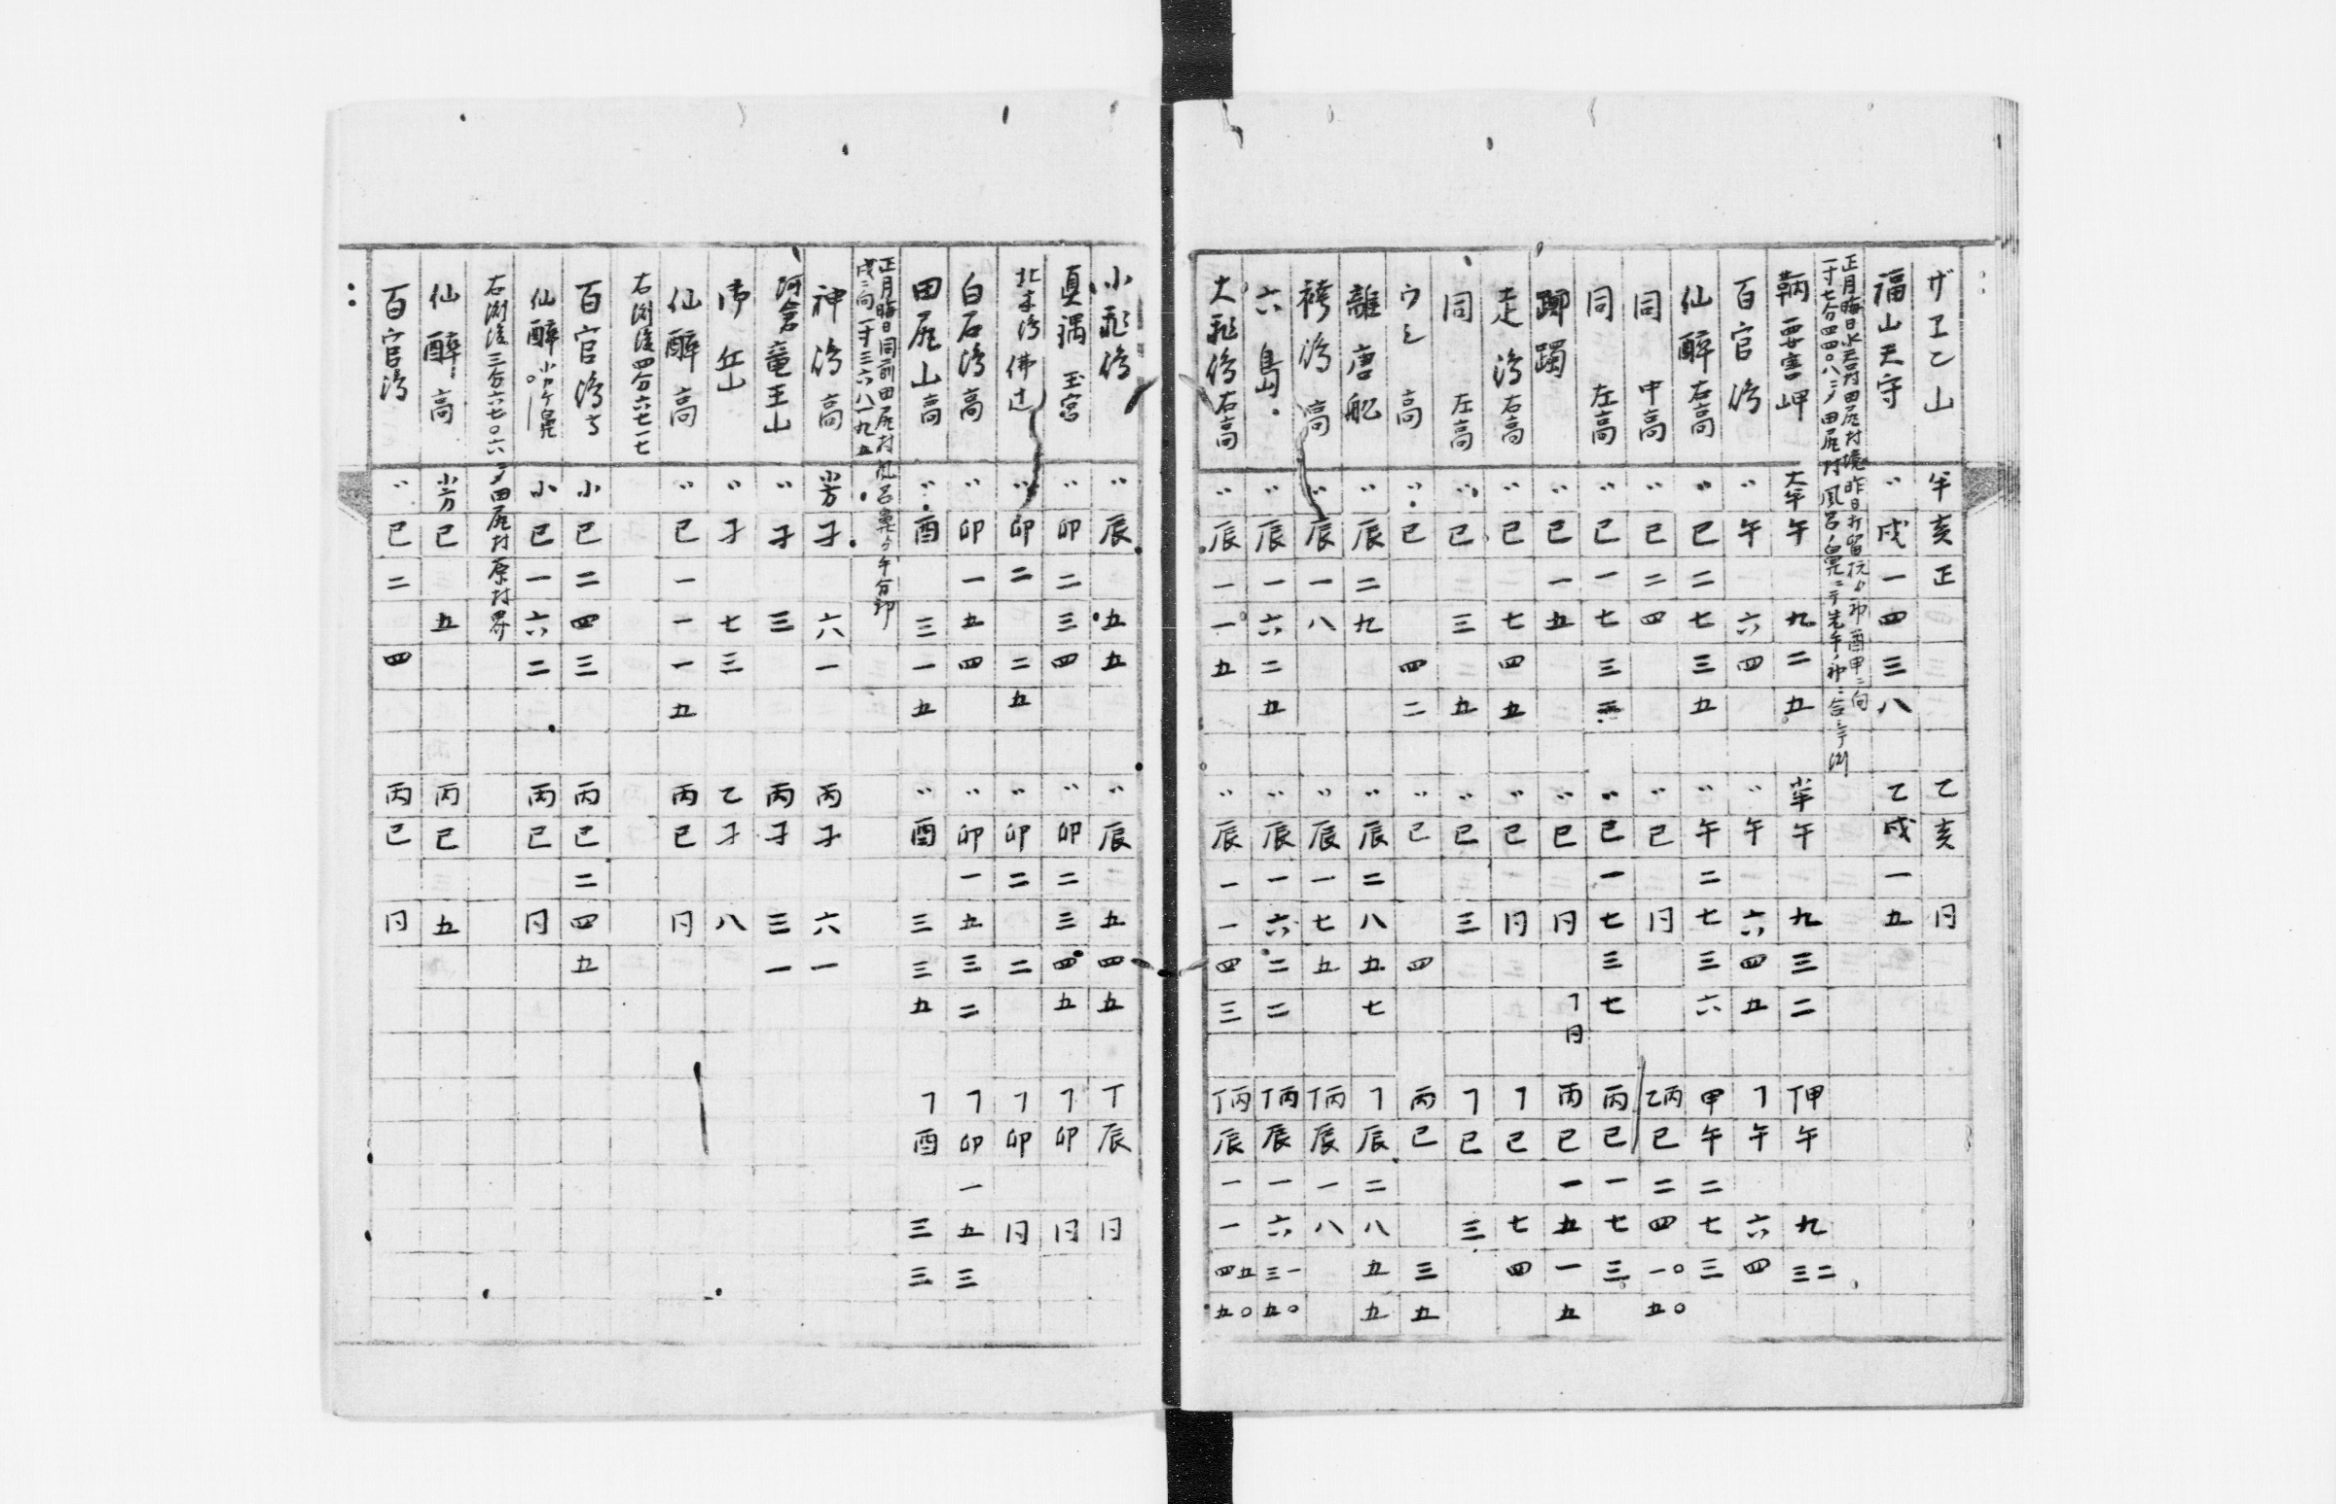 ザヱ乙山 午 亥 正 乙 亥 冂
福山天守 〃 戌 一 四 三 八 乙 戌 一 五
正月晦日水呑村田尻村境昨日打留杭ゟ印酉甲ニ向
一寸七分四四〇八ニメ田尻村風呂ノ鼻ニテ先年ノ印ニ合
鞆要害岬 大半 午 九 二 五 半 午 九 三 二 丁甲 午 九 三二
百官沖 〃 午 六 四 〃 午 六 四 五 丁 午 六 四
仙醉右高 〃 巳 二 七 三 五 〃 午 二 七 三 六 甲 午 二 七 三
同 中高 〃 巳 二 四 〃 巳 冂 乙丙 巳 二 四 一〇 五〇
同 左高 〃 巳 一 七 三 〃 巳 一 七 三 七 丙 巳 一 七 三
躑躅 〃 巳 一 五 〃 巳 冂 丁 冂 丙 巳 一 五 一 五
走沖右高 〃 巳 七 四 五 〃 巳 冂 丁 巳 七 四
同 左高 〃 巳 三 五 〃 巳 三 丁 巳 三
ウシ 高 〃 巳 四 二 〃 巳 四 丙 巳 三 五
離唐船 〃 辰 二 九 〃 辰 二 八 五 七 丁 辰 二 八 五 五
袴沖高 〃 辰 一 八 〃 辰 一 七 五 丁丙 辰 一 八
六島 〃 辰 一 六 二 五 〃 辰 一 六 二 二 丁丙 辰 一 六 三一 五〇
大飛沖右高 〃 辰 一 一 五 〃 辰 一 一 四 三 丁丙 辰 一 一 四五 五〇
小飛沖 〃 辰 五 五 〃 辰 五 四 五 丁 辰 冂
真鍋玉宮 〃 卯 二 三 四 〃 卯 二 三 四 五 丁 卯 冂
北木沖佛辻 〃 卯 二 二 五 〃 卯 二 二 丁 卯 冂
白石沖高 〃 卯 一 五 四 〃 卯 一 五 三 二 丁 卯 一 五 三
田尻山高 〃 酉 三 一 五 〃 酉 三 三 五 丁 酉 三 三
正月晦日同前田尻村風呂鼻ゟ午分印
戌ニ向一寸三六八一九五
神沖高 子 六 一 丙 子 六 一
阿倉竜王山 〃 子 三 丙 子 三 一
〃 子 七 三 乙 子 八
仙醉高 〃 巳 一 一 一 五 丙 巳 冂
右測後四分六七一七
百官沖 小 巳 二 四 三 丙 巳 二 四 五
仙醉 小 巳 一 六 二 丙 巳 冂
右測後三分六七〇六ニメ田尻村原村界
仙醉高 巳 五 丙 巳 五
百官沖 〃 巳 二 四 丙 巳 冂